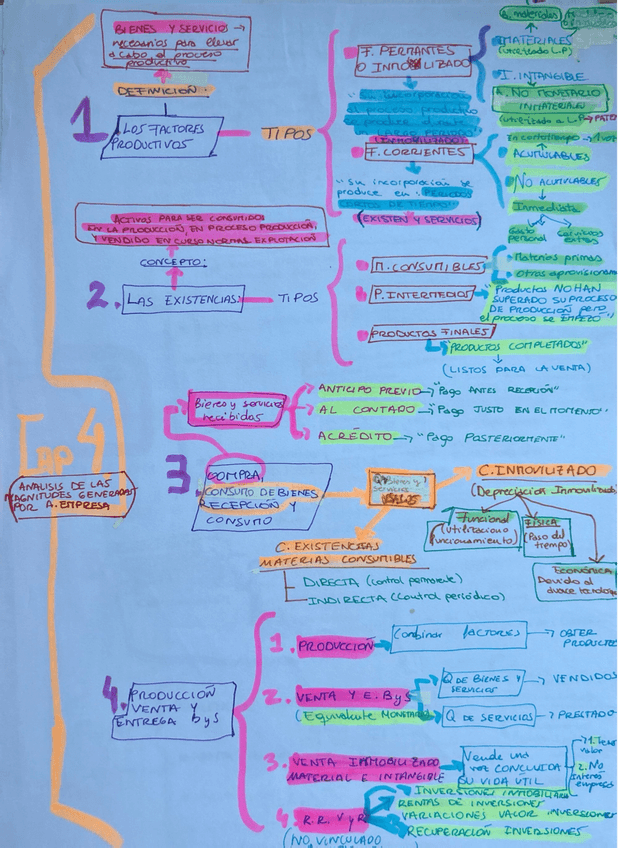 BIENES Y SERVICIO →
necesarios para llevar
a cabo el proceso
productivo
DEFINICIÓN.
1
LOS FACTORES
PRODUCTIVOS
TIPOS
F. PERMANTES
O INMOVILIZADO
"su incorporación
al proceso productivo
se produce durante
LARGO PERIODO"
(INMOBILIZADO)
A. materiales
MATERIALES
(utilizado L.P)
I. INTANGIBLE
A. NO MONETARIO
INMATERIALES
(utilizado a L.P →
F. CORRIENTES
"Su incorporación se
produce en: PERIODOS
CORTOS DE TIEMPO"
(EXISTEN Y SERVICIOS)
En corto tiempo →
ACUMULABLES
NO ACUMULABLES
Inmediata
Gasto
personal
Servicios
extras
ACTIVOS PARA SER CONSUMIDOS
EN LA PRODUCCIÓN, EN PROCESO PRODUCCIÓN,
Y VENDIDO EN CURSO NORMAL EXPLOTACIÓN
CONCEPTO:
2.
LAS EXISTENCIAS
TIPOS
M. CONSUMIBLES
Materias primas
Otras aprovisionam
P. INTERMEDIOS
"Productos NO HAN
SUPERADO SU PROCESO
DE PRODUCCIÓN pero
el proceso se EMPEZO"
PRODUCTOS FINALES
"PRODUCTOS COMPLETADOS"
(LISTOS PARA LA VENTA)
Cap 4
ANALISIS DE LAS
MAGNITUDES GENERADAS
POR A. EMPRESA
Bienes y servicios
recibidos
ANTICIPO PREVIO → "Pago ANTES RECEPIÓN"
AL CONTADO → "Pago JUSTO EN EL MOMENTO"
ACRÉDITO → "Pago POSTERIORMENTE"
3
COMPRA,
CONSUMO DE BIENES
RECEPCIÓN Y
CONSUMO
Q Bienes y
servicios
C. INMOVILIZADO
(Depreciación Inmovilizado
Funcional
(Utilización o
funcionamiento)
FÍSICA
(Paso del
tiempo)
ECONÓMICA
Devido al
avace tecnologi
C. EXISTENCIAS
MATERIAS CONSUMIBLES
DIRECTA (Control permanente)
INDIRECTA (Control periódico)
4.
PRODUCCIÓN
VENTA Y
ENTREGA byS
1. PRODUCCIÓN
Combinar factores
→ OBTER
PRODUCTO
2. VENTA Y E. ByS
(Equivalente Monetario)
Q DE BIENES Y
SERVICIOS
→ VENDIDOS
Q DE SERVICIOS
→ PRESTADO
3. VENTA INMOBILIZADO
MATERIAL E INTANGIBLE
Vende una
vez CONCLUIDA
SU VIDA ÚTIL
1. Tener
valor
2. No
Interés
empresa
4. R.R. V y R
(NO VINCULADO
INVERSIONES INMOBILIARIA
RENTAS DE INVERSIONES
VARIACIONES VALOR INVERSIONES
RECUPERACIÓN INVERSIONES